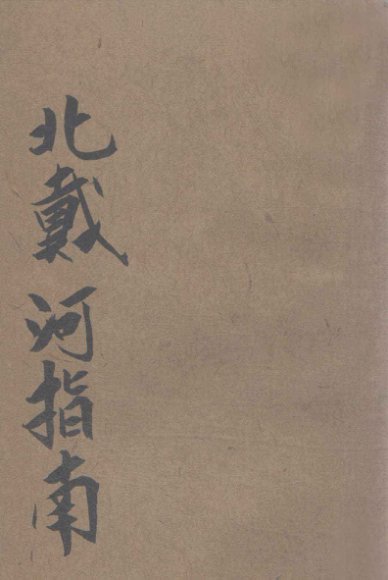 北戴河指南